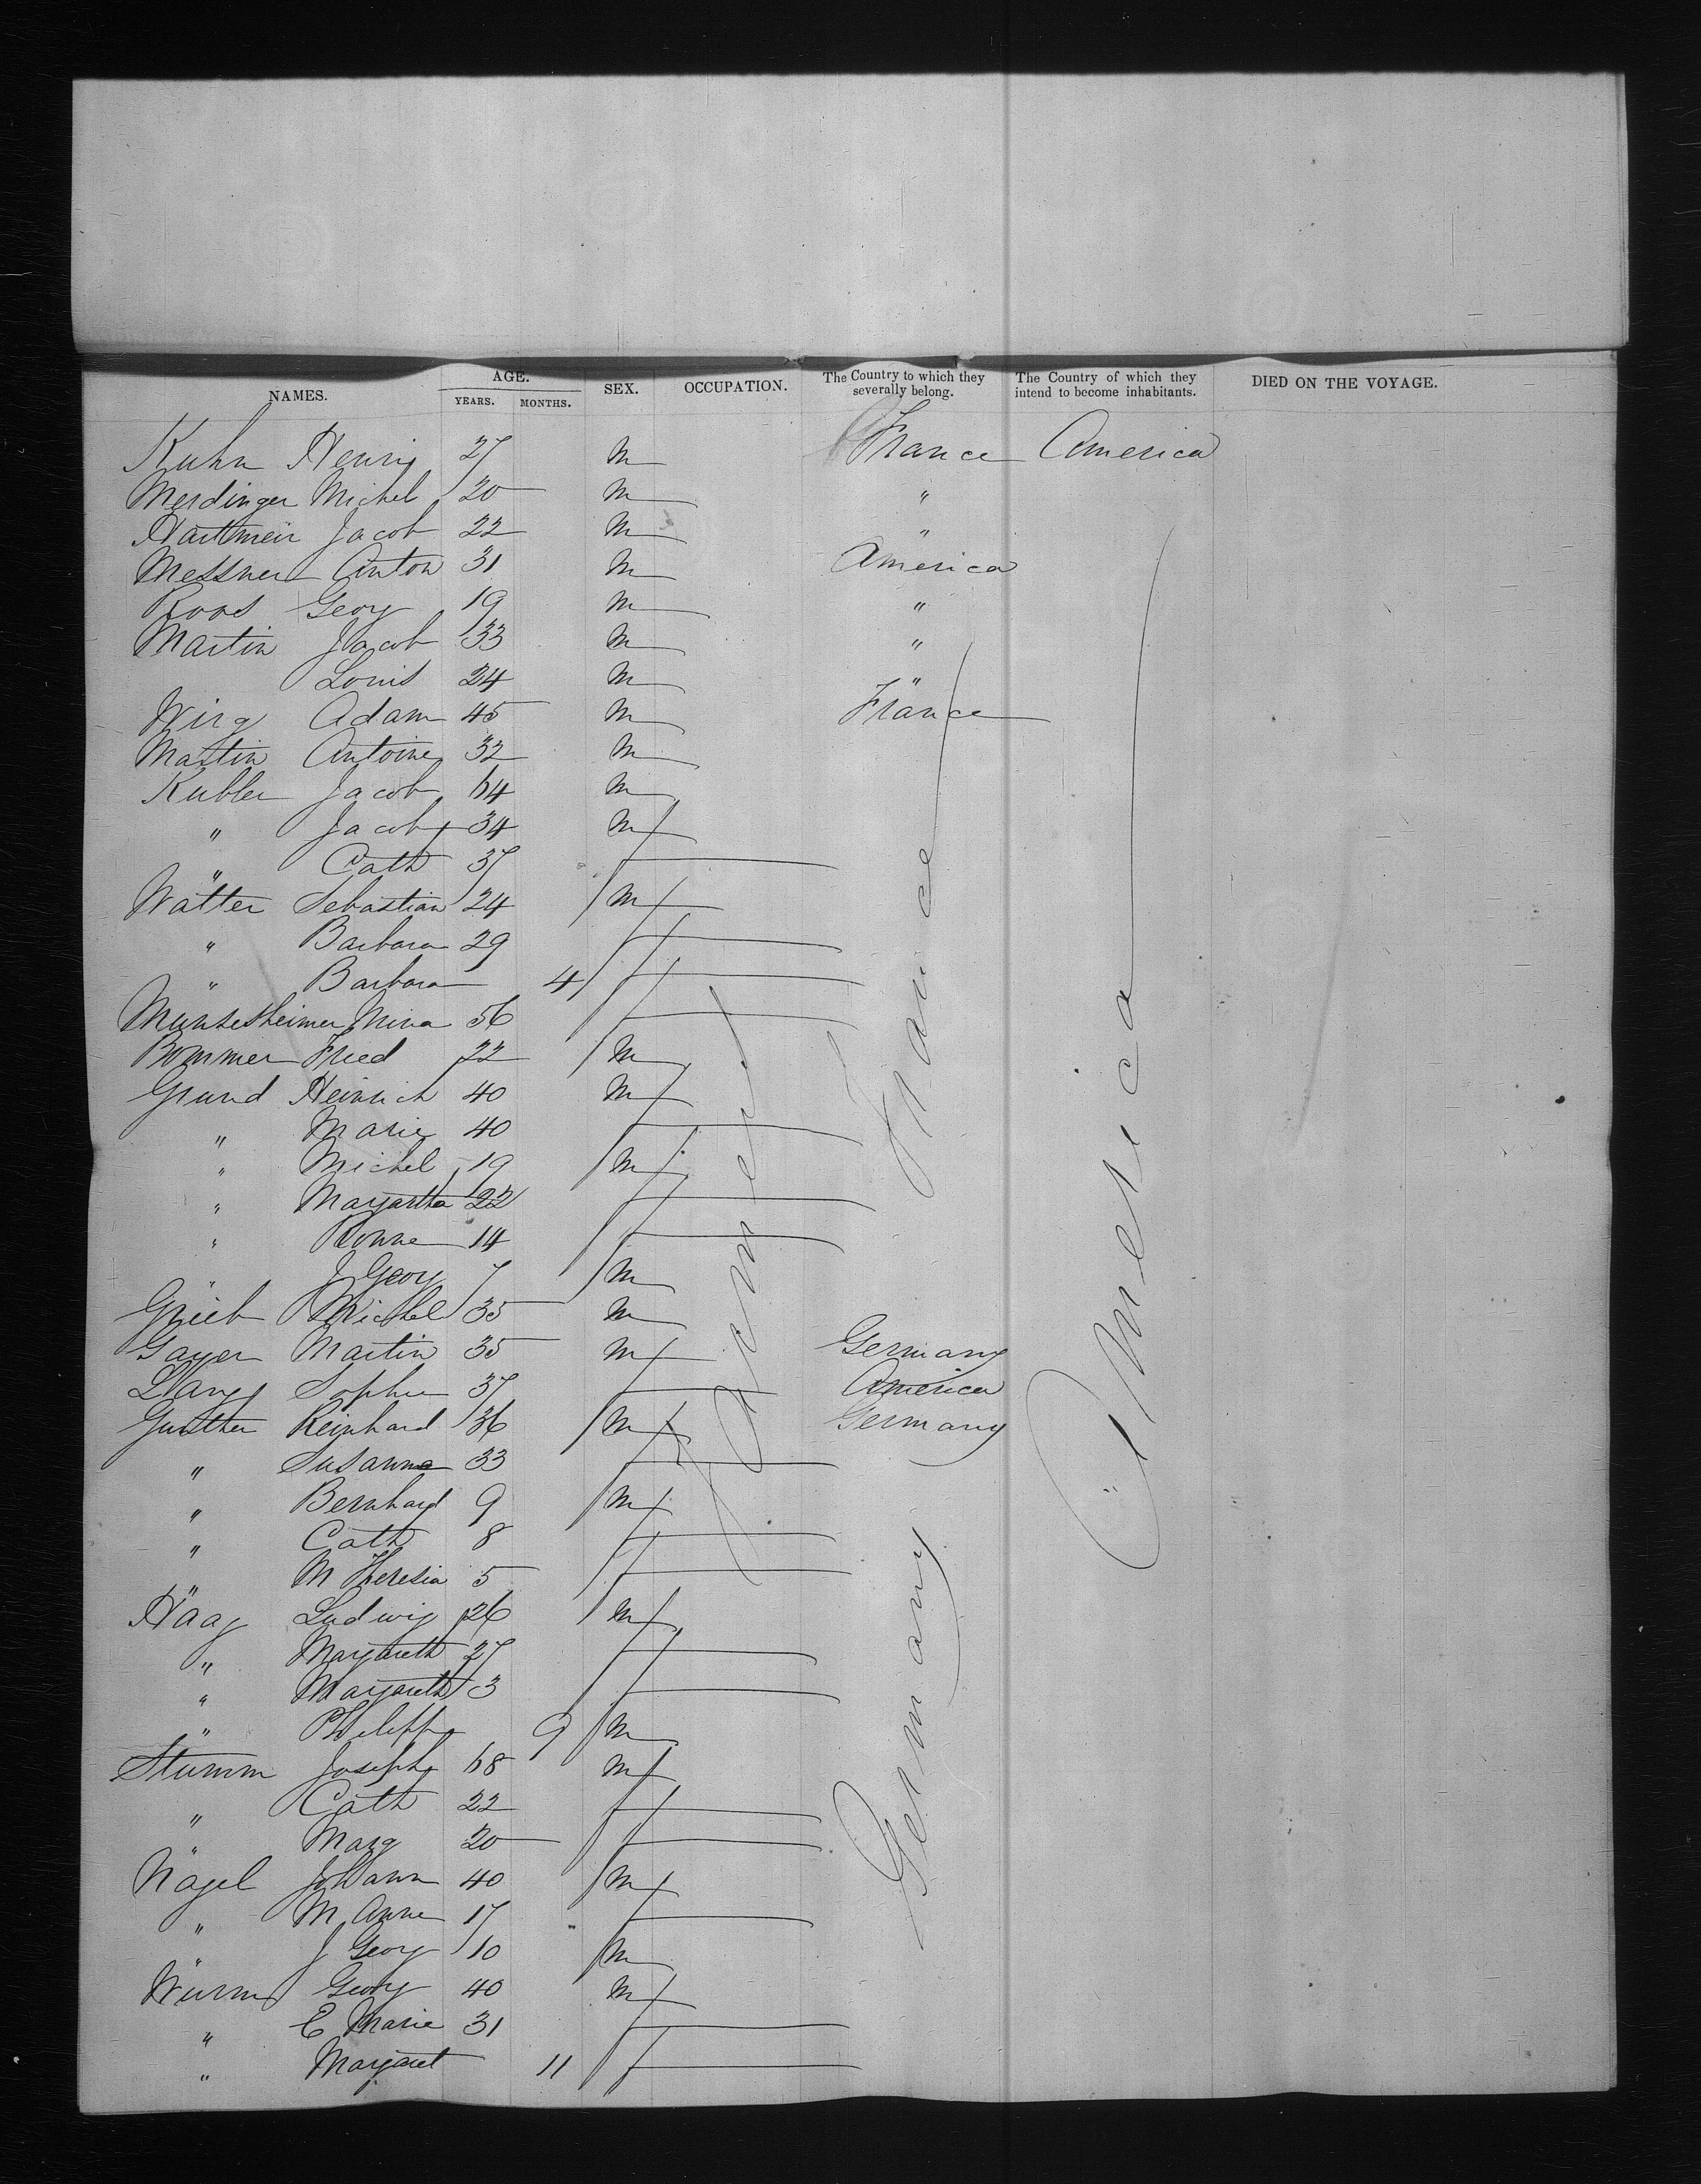 NAMES. AGE. YEARS. MONTHS. SEX. OCCUPATION. The Country to which they severally belong. The Country of which they intend to become inhabitants. DIED ON THE VOYAGE.
Kuhn Henry 27 m France America
Merdinger Michel 20 m "
Hartmeir Jacob 22 m "
Messner Anton 31 m America
Roos Georg 19 m "
Martin Jacob 33 m "
Louis 24 m "
Wirg Adam 45 m France
Martin Antoine 32 m
Kubler Jacob 64 m
" Jacob 34 m
" Cath 37 f
Watter Sebastian 24 m
" Barbara 29 f
" Barbara 4 f
Munkesheimer Mina 56 f
Bommer Fried 22 m
Grund Heinrich 40 m
" Marie 40 f
" Michel 19 m
" Margartha 22 f
" 14 f
" J Georg 7 m
Grieb Michel 35 m
Gayer Martin 35 m Germany
Lang Sophie 37 f America
Gunther Reinhard 36 m Germany
" Susanna 33 f
" Bernhard 9 m
" Cath 8 f
" M Theresia 5 f
Haag Ludwig 26 m
" Margareth 27 f
" Margareth 3 f
" Philipp 9 m
Stumm Joseph 68 m
" Cath 22 f
" Marg 20 f
Nagel Johann 40 m
" M Anne 17 f
" J Georg 10 m
Wurm Georg 40 m
" E Marie 31 f
" Margaret 11 f
Farmer
France
Germany
America